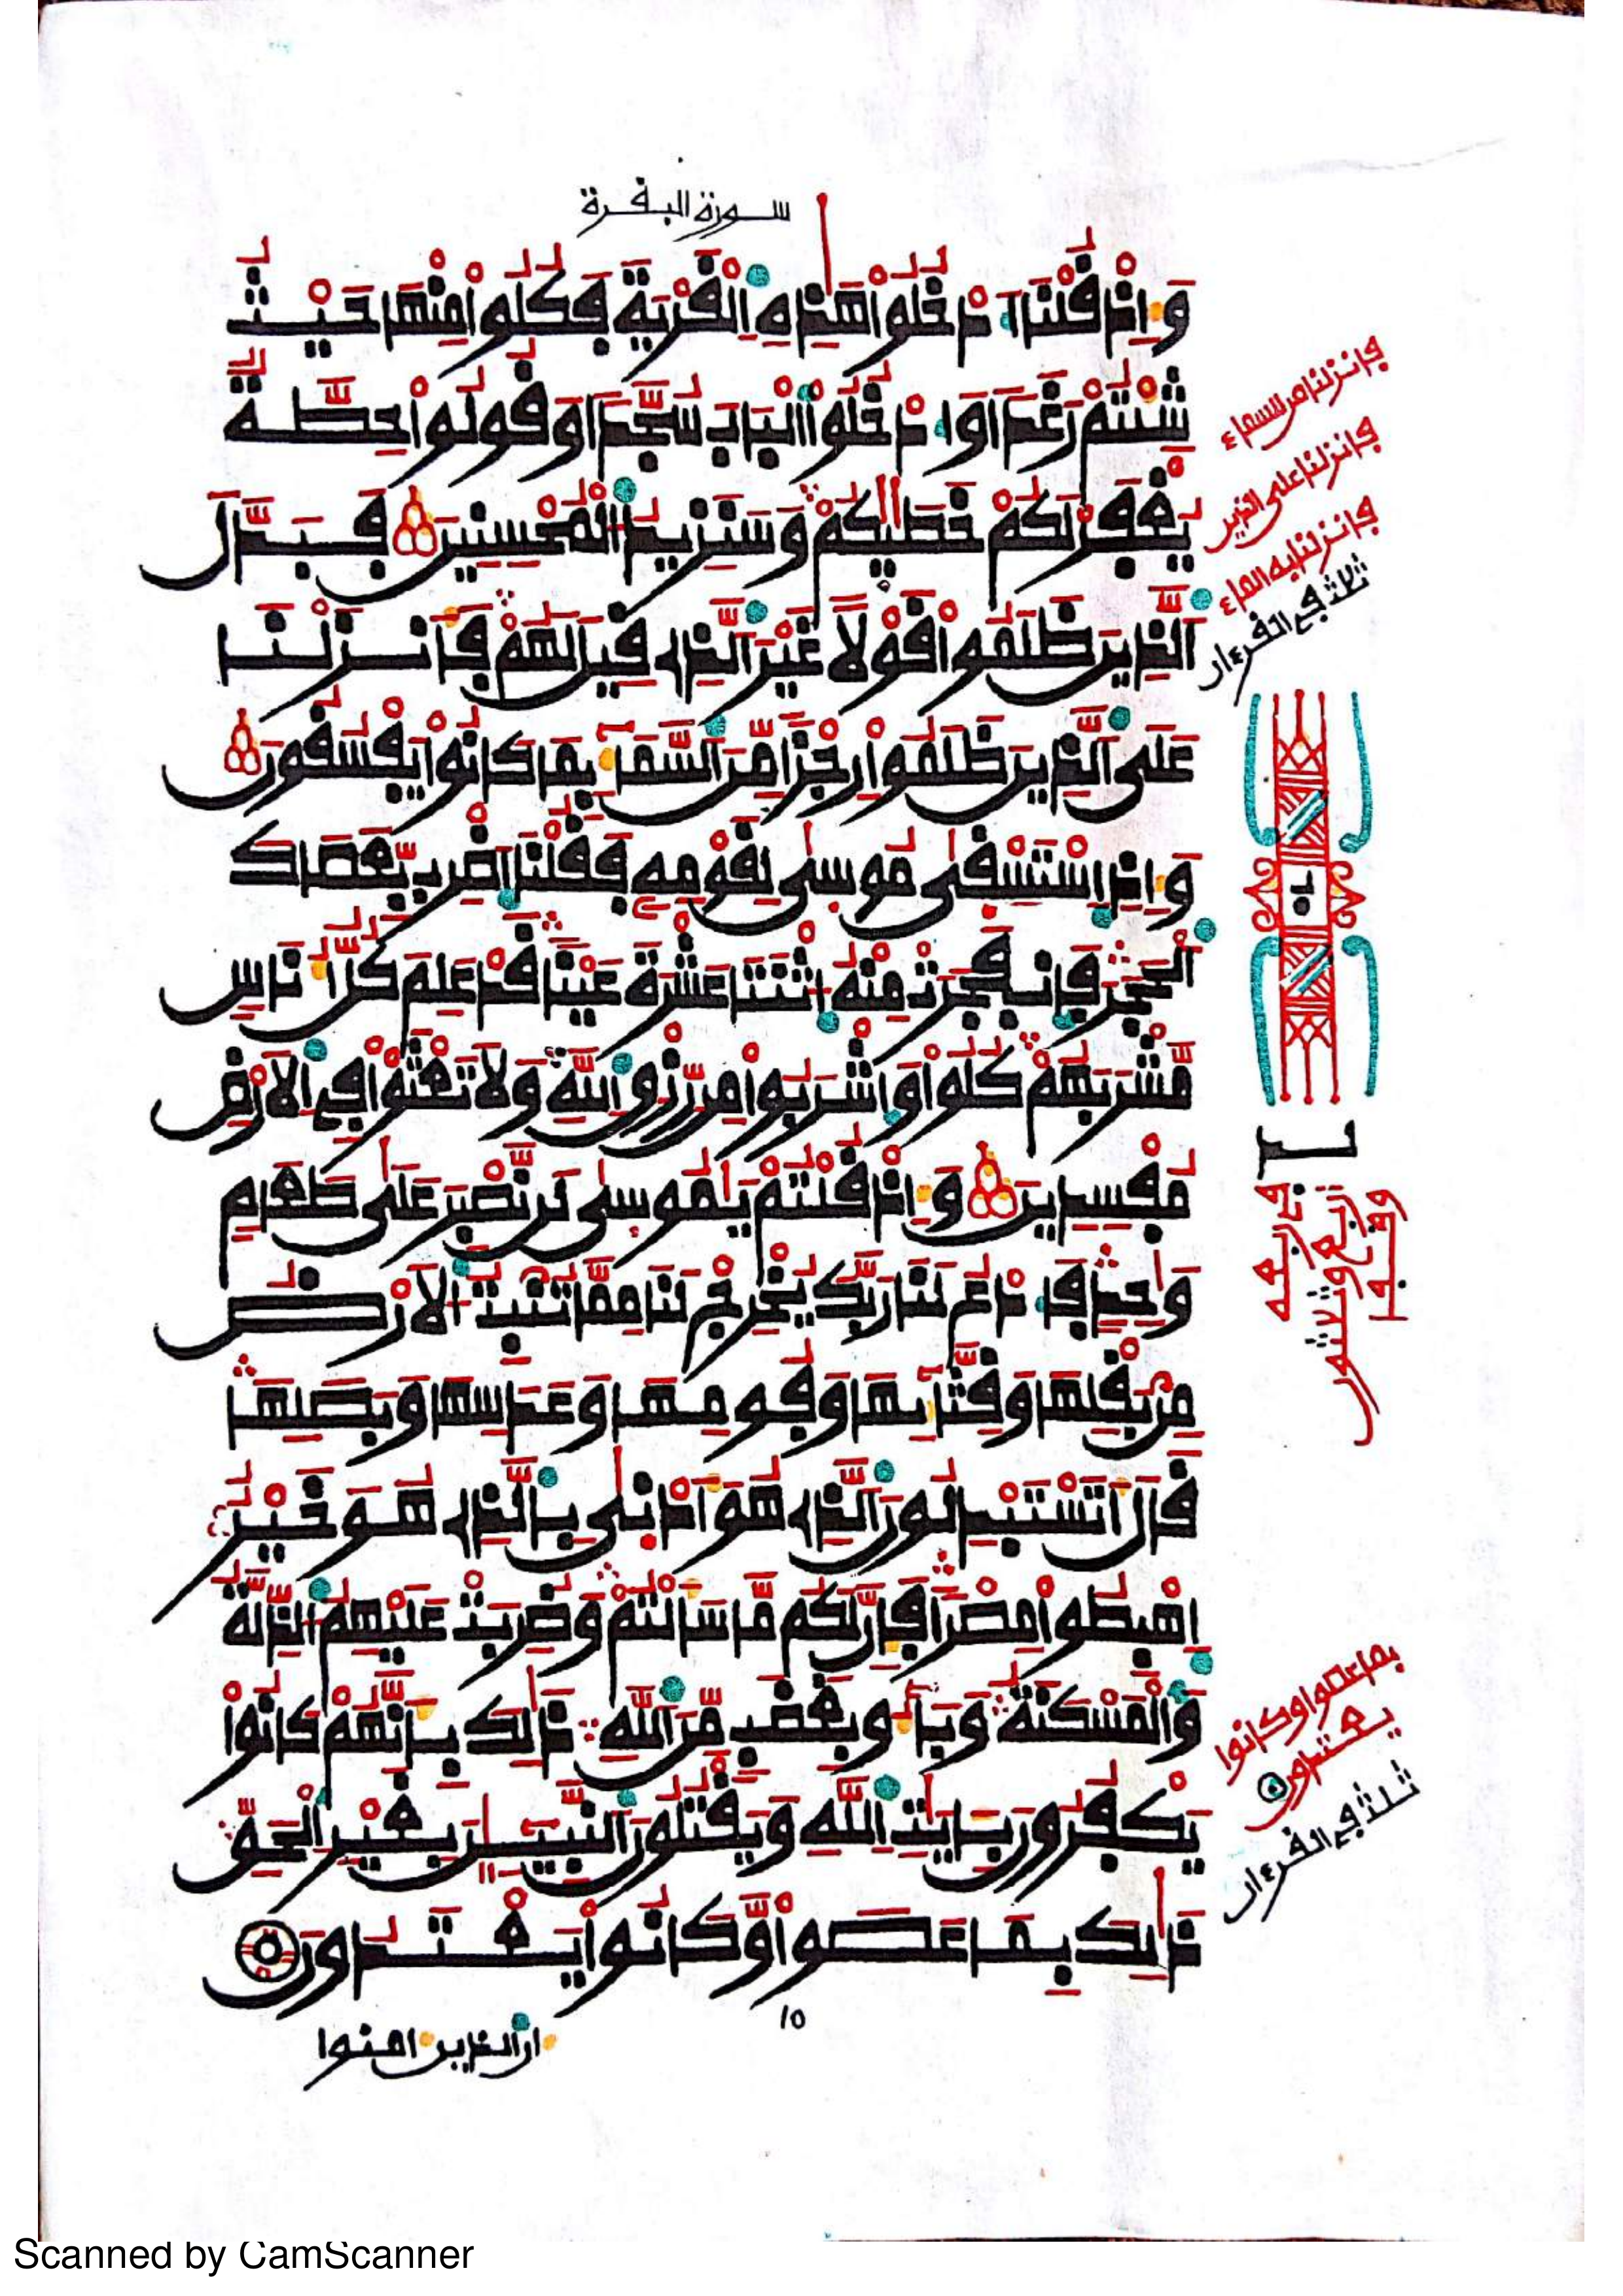 سورة البقرة
وَإِذْ قُلْنَا ادْخُلُوا هَٰذِهِ الْقَرْيَةَ فَكُلُوا مِنْهَا حَيْثُ
شِئْتُمْ رَغَدًا وَادْخُلُوا الْبَابَ سُجَّدًا وَقُولُوا حِطَّةٌ
يُغْفَرْ لَكُمْ خَطَٰيَٰكُمْ وَسَنَزِيدُ الْمُحْسِنِينَ فَبَدَّلَ
الَّذِينَ ظَلَمُوا قَوْلًا غَيْرَ الَّذِي قِيلَ لَهُمْ فَأَنزَلْنَا
عَلَى الَّذِينَ ظَلَمُوا رِجْزًا مِّنَ السَّمَاءِ بِمَا كَانُوا يَفْسُقُونَ
وَإِذِ اسْتَسْقَىٰ مُوسَىٰ لِقَوْمِهِ فَقُلْنَا اضْرِب بِّعَصَاكَ
الْحَجَرَ فَانفَجَرَتْ مِنْهُ اثْنَتَا عَشْرَةَ عَيْنًا قَدْ عَلِمَ كُلُّ أُنَاسٍ
مَّشْرَبَهُمْ كُلُوا وَاشْرَبُوا مِن رِّزْقِ اللَّهِ وَلَا تَعْثَوْا فِي الْأَرْضِ
مُفْسِدِينَ وَإِذْ قُلْتُمْ يَٰمُوسَىٰ لَن نَّصْبِرَ عَلَىٰ طَعَامٍ
وَٰحِدٍ فَادْعُ لَنَا رَبَّكَ يُخْرِجْ لَنَا مِمَّا تُنبِتُ الْأَرْضُ
مِن بَقْلِهَا وَقِثَّائِهَا وَفُومِهَا وَعَدَسِهَا وَبَصَلِهَا
قَالَ أَتَسْتَبْدِلُونَ الَّذِي هُوَ أَدْنَىٰ بِالَّذِي هُوَ خَيْرٌ
اهْبِطُوا مِصْرًا فَإِنَّ لَكُم مَّا سَأَلْتُمْ وَضُرِبَتْ عَلَيْهِمُ الذِّلَّةُ
وَالْمَسْكَنَةُ وَبَاءُو بِغَضَبٍ مِّنَ اللَّهِ ذَٰلِكَ بِأَنَّهُمْ كَانُوا
يَكْفُرُونَ بِـَٔايَٰتِ اللَّهِ وَيَقْتُلُونَ النَّبِيـِٕينَ بِغَيْرِ الْحَقِّ
ذَٰلِكَ بِمَا عَصَوا وَّكَانُوا يَعْتَدُونَ
١٥
ان الذين امنوا
فانزلنا من السماء
فانزلنا على الذين
فانزلنا به الماء
ثلاث في القرءان
بما عصوا وكانوا
يعتدون
ثلث في القرءان
Scanned by CamScanner